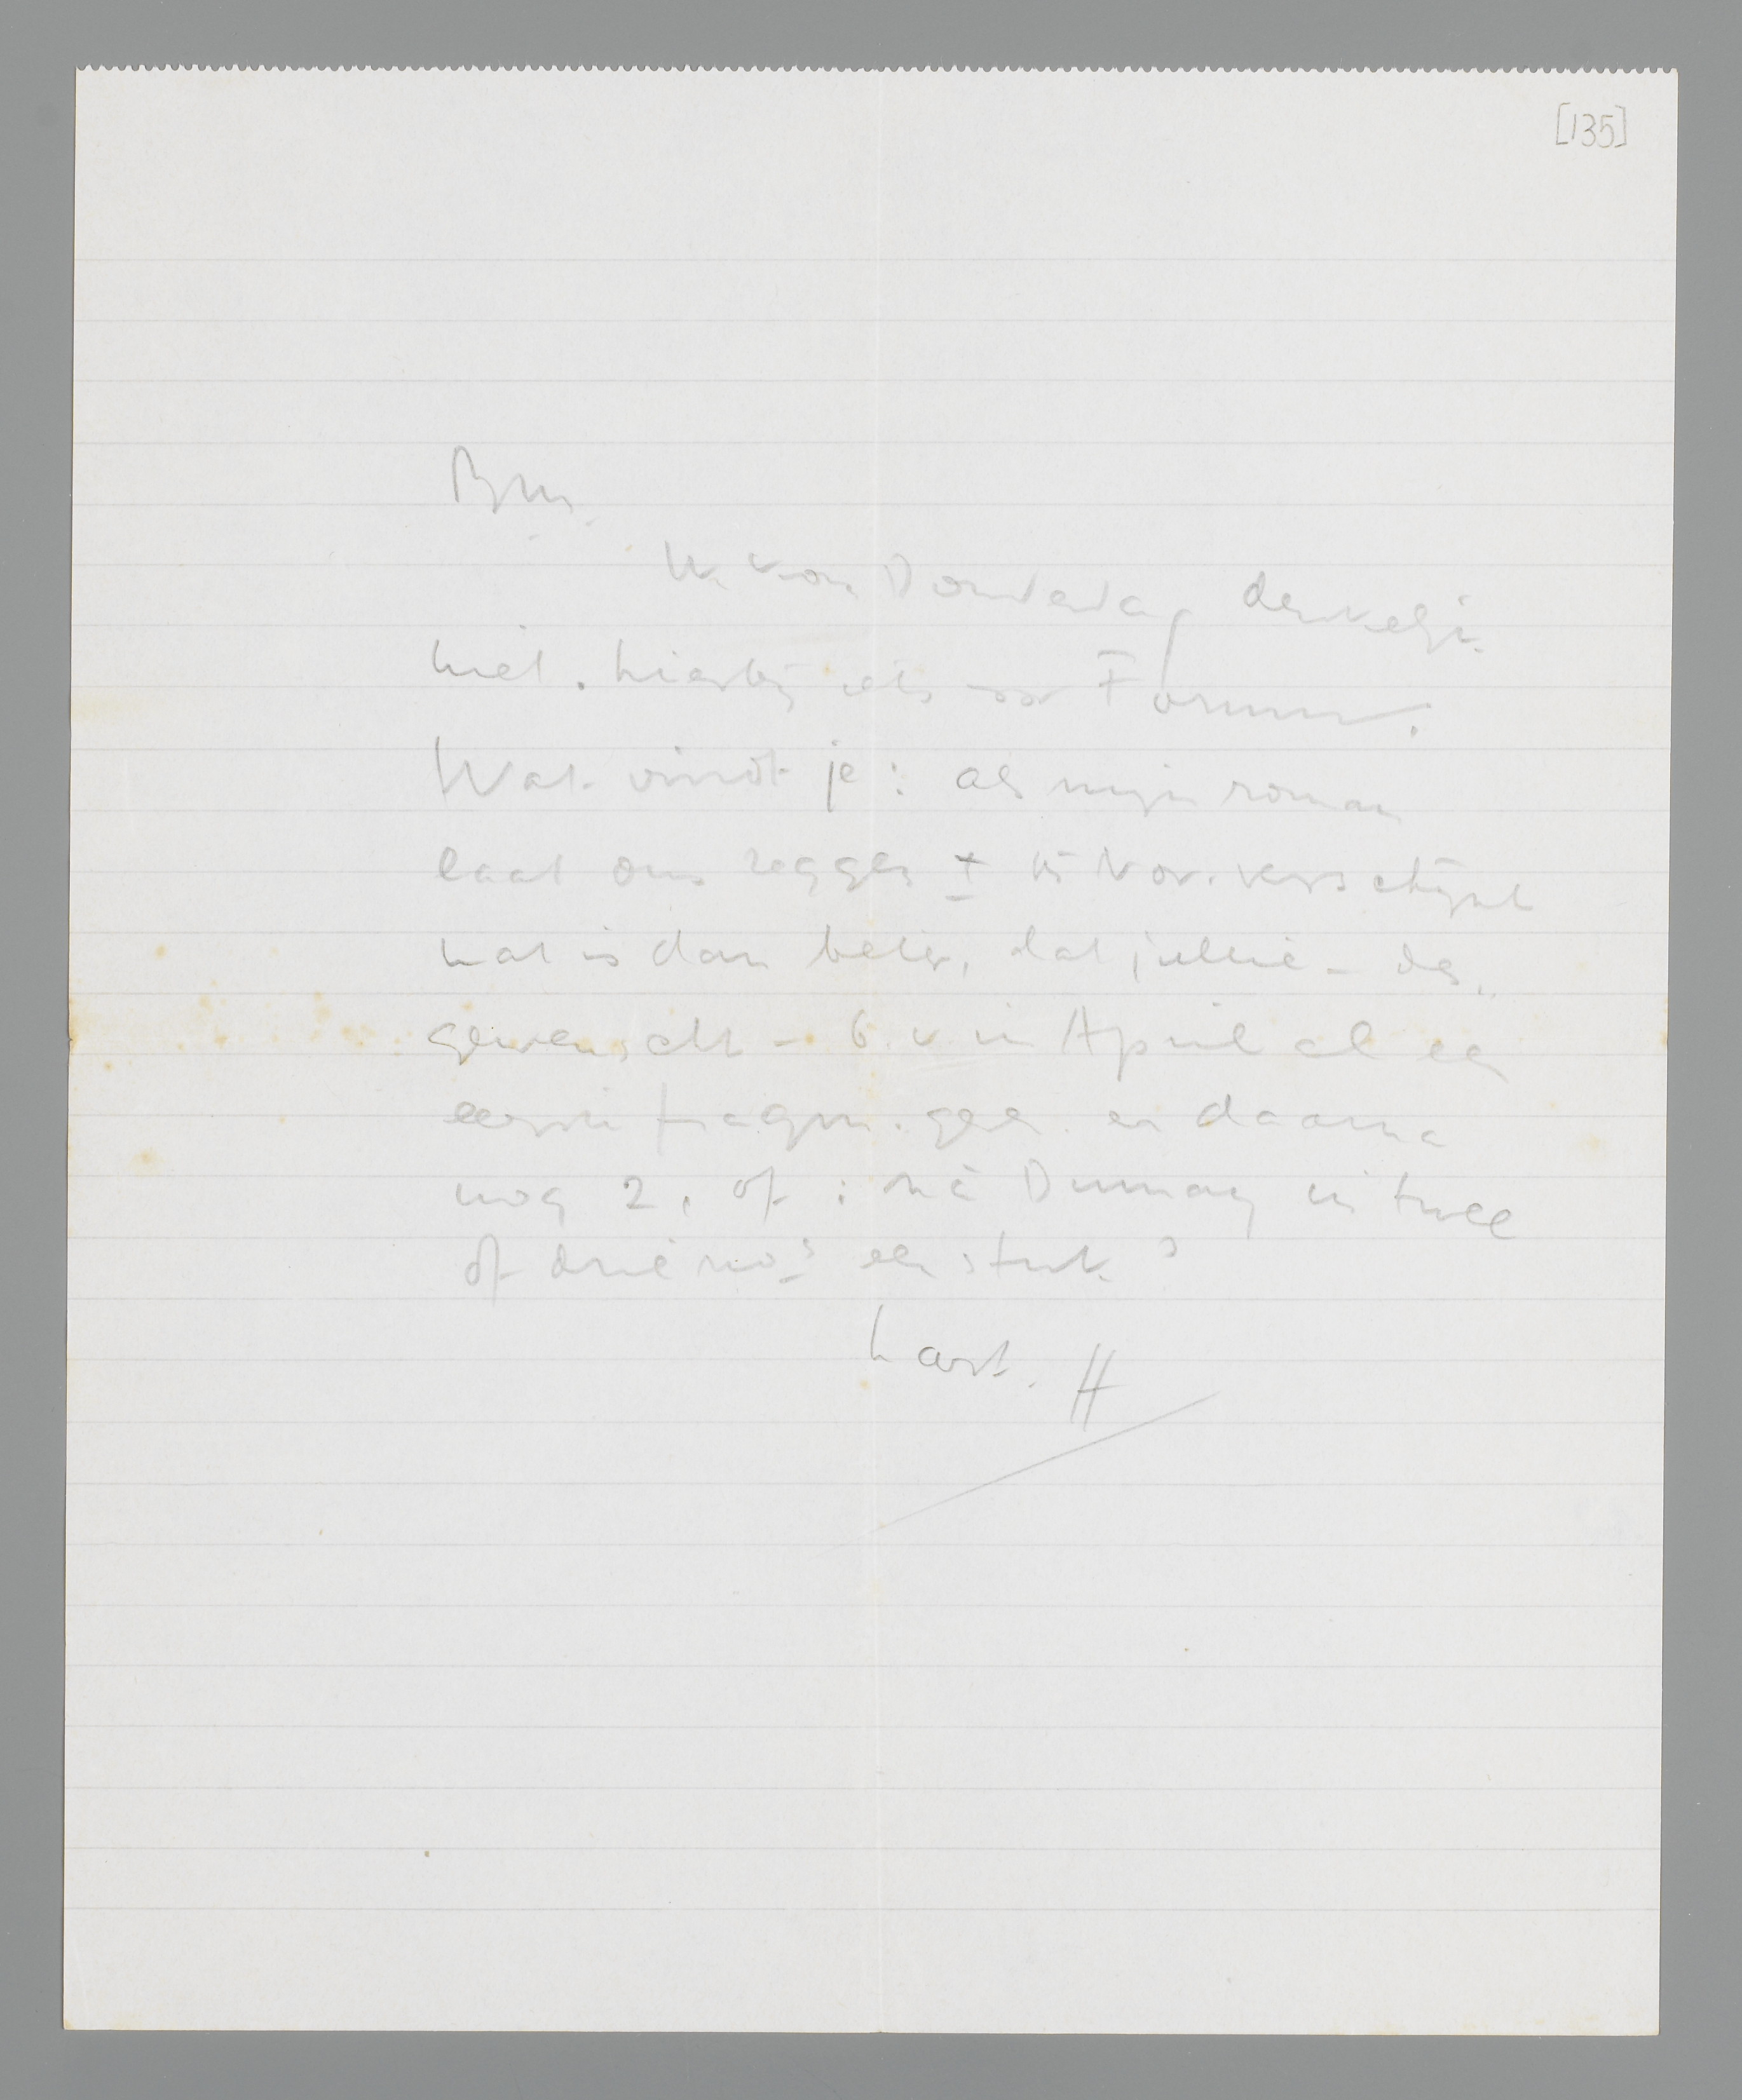 [135]
B m.
Donderdag
niet. hierbij iets voor Forum.
Wat vindt je: als mijn roman
laat ons zeggen ± 15 Nov. verschijnt
wat is dan beter, dat jullie - des
gewenscht - b.v. in April al een
eerste fragm. geen. en daarna
nog 2, of: na Dumay in twee
of drie no's een stuk?
hart. H